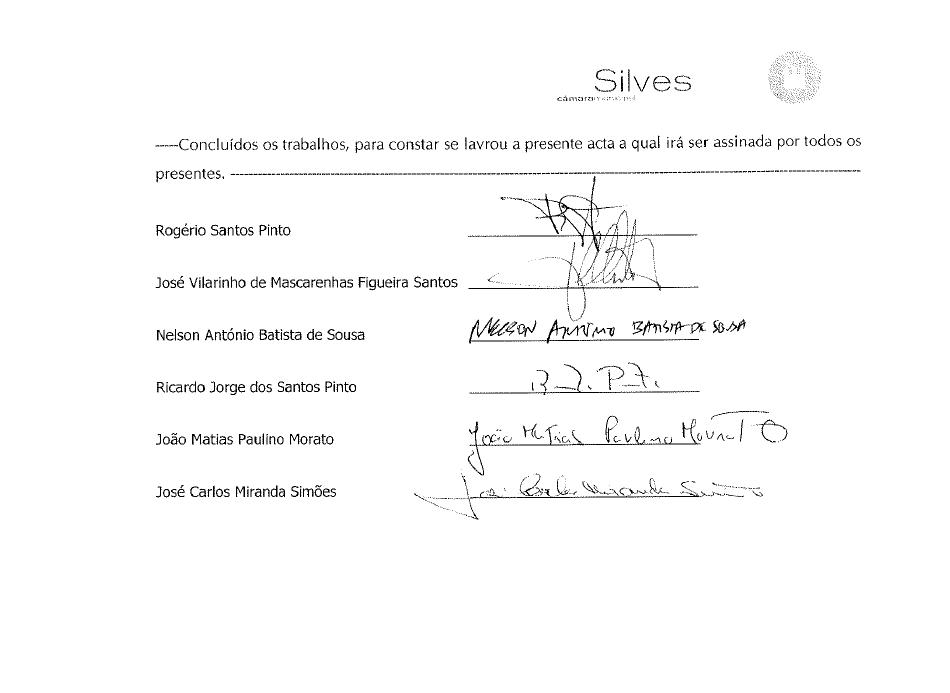 Silves
câmara municipal
-----Concluídos os trabalhos, para constar se lavrou a presente acta a qual irá ser assinada por todos os
presentes. -----------------------------------------------------------------------------------------------
Rogério Santos Pinto
José Vilarinho de Mascarenhas Figueira Santos
Nelson António Batista de Sousa NELSON ANTÓNIO BATISTA DE SOUSA
Ricardo Jorge dos Santos Pinto
João Matias Paulino Morato João Matias Paulino Morato
José Carlos Miranda Simões José Carlos Miranda Simões